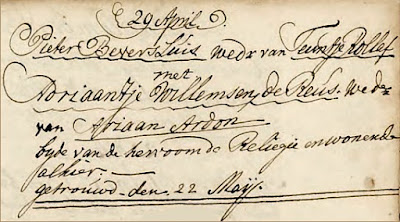 29 April.
Pieter Beversluis wedr van Teuntje Rollof
met
Adriaantje Willemsen de Reus. Wed.
van Ariaan Ardon
byde van de hervoomde Religie en wonende
alhier.
getrouwd den 22 Maij.